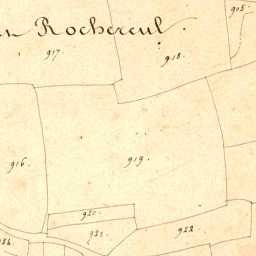 905.
Rochereul.
917.
918.
916.
919.
920.
921.
922.